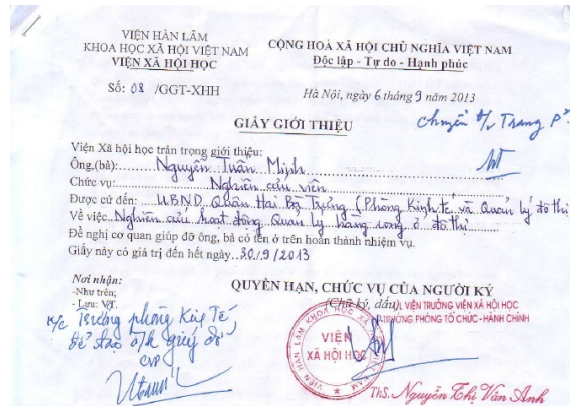 VIỆN HÀN LÂM
KHOA HỌC XÃ HỘI VIỆT NAM
VIỆN XÃ HỘI HỌC
Số: 08 /GGT-XHH
CỘNG HOÀ XÃ HỘI CHỦ NGHĨA VIỆT NAM
Độc lập - Tự do - Hạnh phúc
Hà Nội, ngày 6 tháng 9 năm 2013
GIẤY GIỚI THIỆU
Chuyển đ/c Trang P²
Viện Xã hội học trân trọng giới thiệu:
Ông,(bà): Nguyễn Tuấn Minh
Chức vụ: Nghiên cứu viên
Được cử đến: UBND Quận Hai Bà Trưng (Phòng Kinh tế và Quản lý đô thị
Về việc Nghiên cứu hoạt động Quản lý hàng rong ở đô thị
Đề nghị cơ quan giúp đỡ ông, bà có tên ở trên hoàn thành nhiệm vụ.
Giấy này có giá trị đến hết ngày..30/9/2013
Nơi nhận:
-Như trên;
- Lưu: VT.
K/c Trưởng phòng Kinh Tế,
để tạo đ/k giúp đỡ
CVP
QUYỀN HẠN, CHỨC VỤ CỦA NGƯỜI KÝ
(Chữ ký, dấu)
VIỆN TRƯỞNG VIỆN XÃ HỘI HỌC
TRƯỞNG PHÒNG TỔ CHỨC - HÀNH CHÍNH
VIỆN
XÃ HỘI HỌC
ThS. Nguyễn Thị Vân Anh